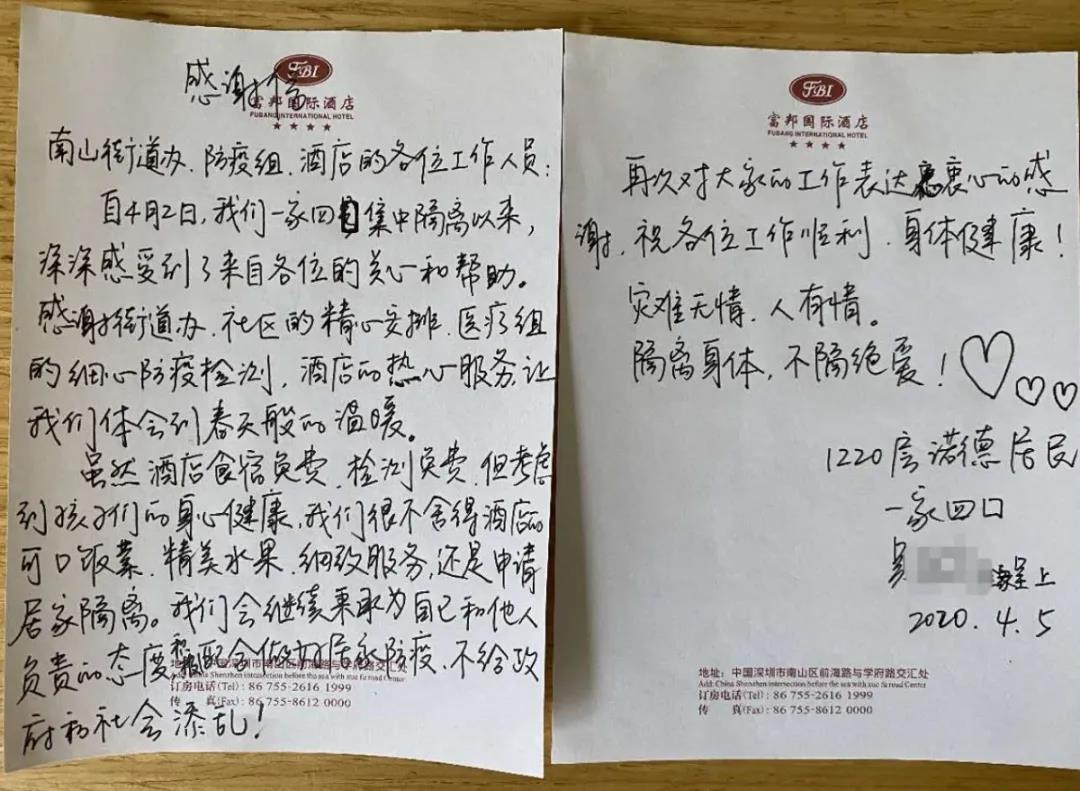 感谢信
FBI
富邦国际酒店
FUBANG INTERNATIONAL HOTEL
南山街道办、防疫组、酒店的各位工作人员：
自4月2日，我们一家四口集中隔离以来，
深深感受到了来自各位的关心和帮助。
感谢街道办、社区的精心安排，医疗组
的细心防疫检测，酒店的热心服务，让
我们体会到春天般的温暖。
虽然酒店食宿免费，检测免费，但考虑
到孩子们的身心健康，我们很不舍得酒店的
可口饭菜、精美水果、细致服务，还是申请
居家隔离。我们会继续秉承为自己和他人
负责的态度，积极配合做好居家防疫，不给政
府和社会添乱！
地址：中国深圳市南山区前海路与学府路交汇处
订房电话(Tel)：86 755-2616 1999
传 真(Fax)：86 755-8612 0000
FBI
富邦国际酒店
FUBANG INTERNATIONAL HOTEL
再次对大家的工作表达衷心的感
谢，祝各位工作顺利，身体健康！
灾难无情，人有情。
隔离身体，不隔绝爱！
1220房诺德居民
一家四口
呈上
2020.4.5
地址：中国深圳市南山区前海路与学府路交汇处
Add: China Shenzhen intersection before the sea with xue fu road Center
订房电话(Tel)：86 755-2616 1999
传 真(Fax)：86 755-8612 0000